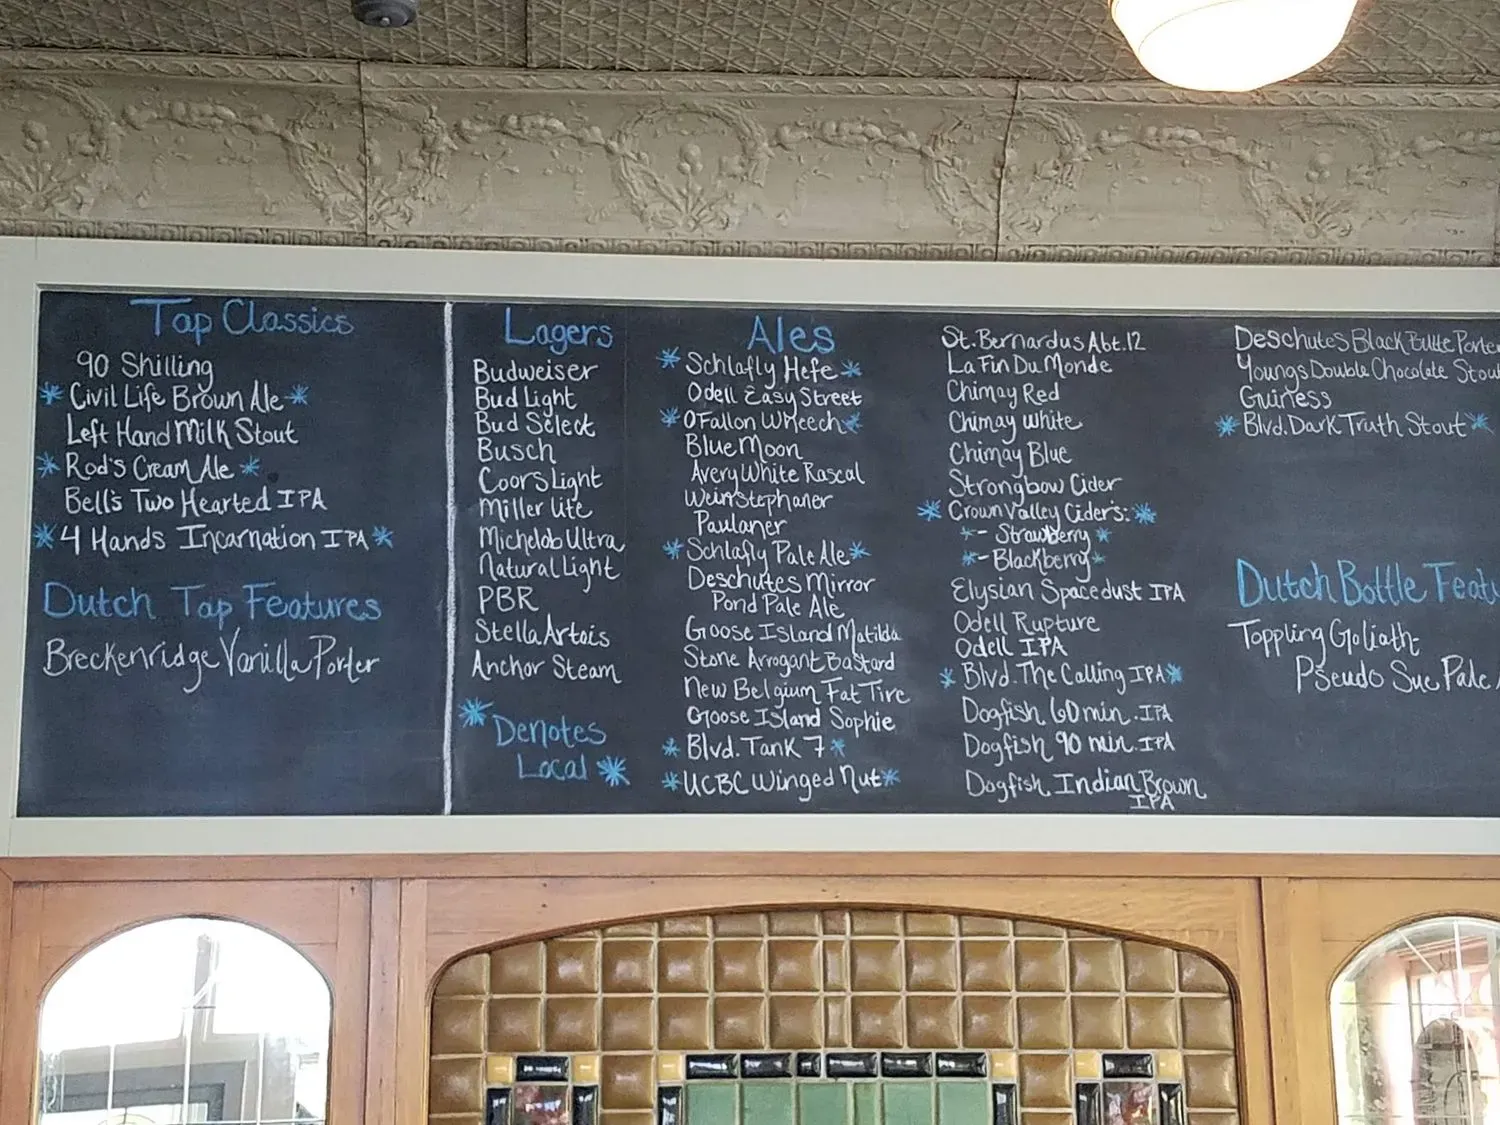 Tap Classics
90 Shilling
Civil Life Brown Ale
Left Hand Milk Stout
Rod's Cream Ale
Bell's Two Hearted IPA
4 Hands Incarnation IPA
Dutch Tap Features
Breckenridge Vanilla Porter
Lagers
Budweiser
Bud Light
Bud Select
Busch
Coors Light
Miller Lite
Michelob Ultra
Natural Light
PBR
Stella Artois
Anchor Steam
Denotes
Local
Ales
Schlafly Hefe
Odell Easy Street
O'Fallon Wheech
Blue Moon
Avery White Rascal
Weinstephaner
Paulaner
Schlafly Pale Ale
Deschutes Mirror
Pond Pale Ale
Goose Island Matilda
Stone Arrogant Bastard
New Belgium Fat Tire
Goose Island Sophie
Blvd. Tank 7
UCBC Winged Nut
St. Bernardus Abt. 12
La Fin Du Monde
Chimay Red
Chimay White
Chimay Blue
Strongbow Cider
Crown Valley Cider's:
- Strawberry
- Blackberry
Elysian Spacedust IPA
Odell Rupture
Odell IPA
Blvd. The Calling IPA
Dogfish 60 min. IPA
Dogfish 90 min. IPA
Dogfish Indian Brown
IPA
Deschutes Black Butte Porter
Youngs Double Chocolate Stout
Guiness
Blvd. Dark Truth Stout
Dutch Bottle Featu
Toppling Goliath-
Pseudo Sue Pale